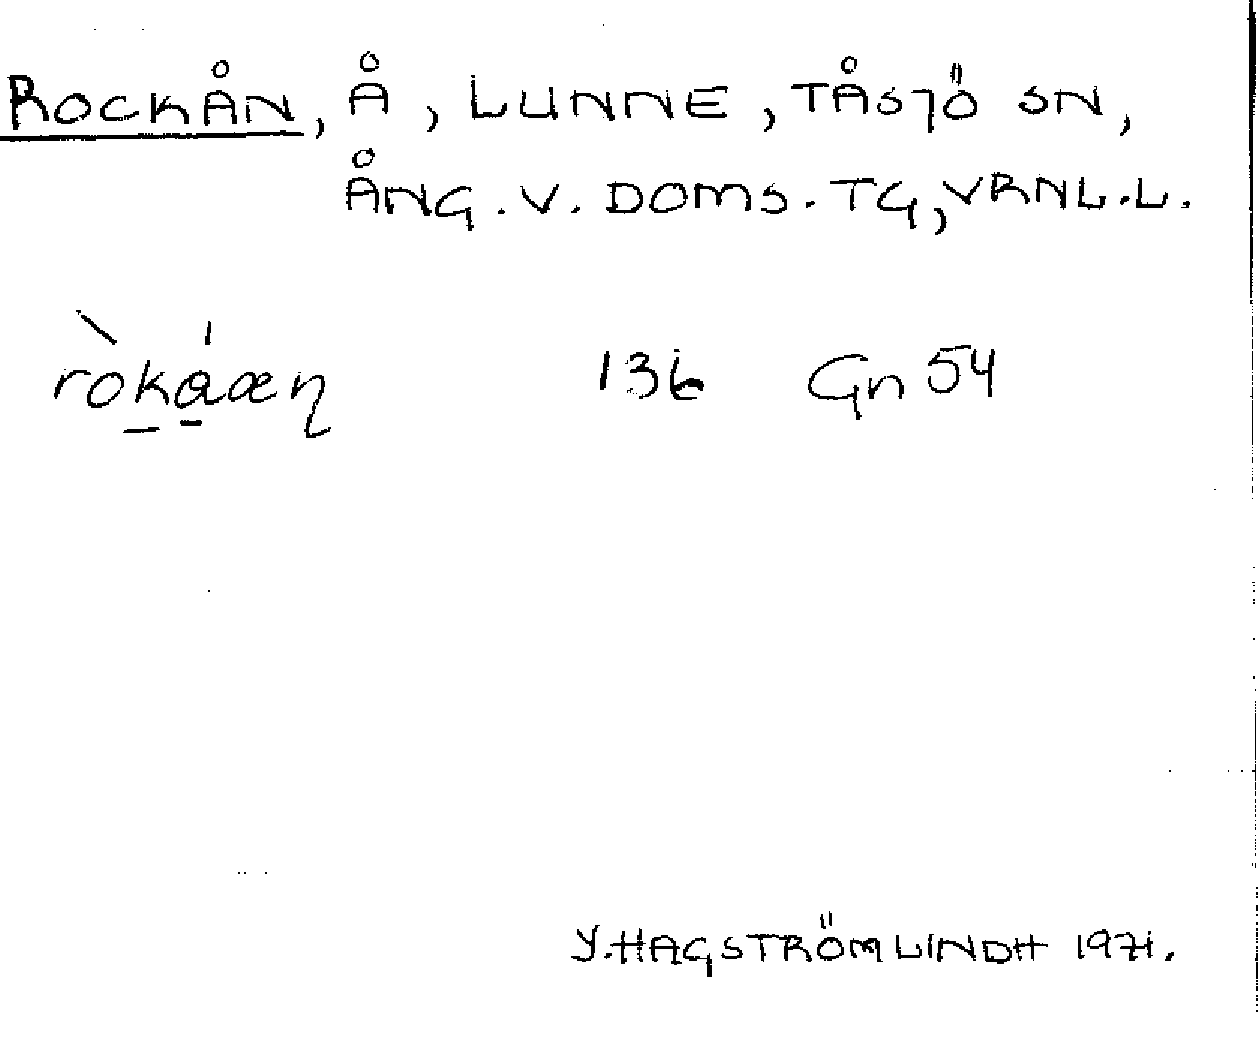 ROCKÅN, Å, LUNNE, TÅSJÖ SN,
ÅNG. V. DOMS. TG, VRNL. L.
ròka̲áæn 136 Gn 54
Y. HAGSTRÖM LINDH 1971.